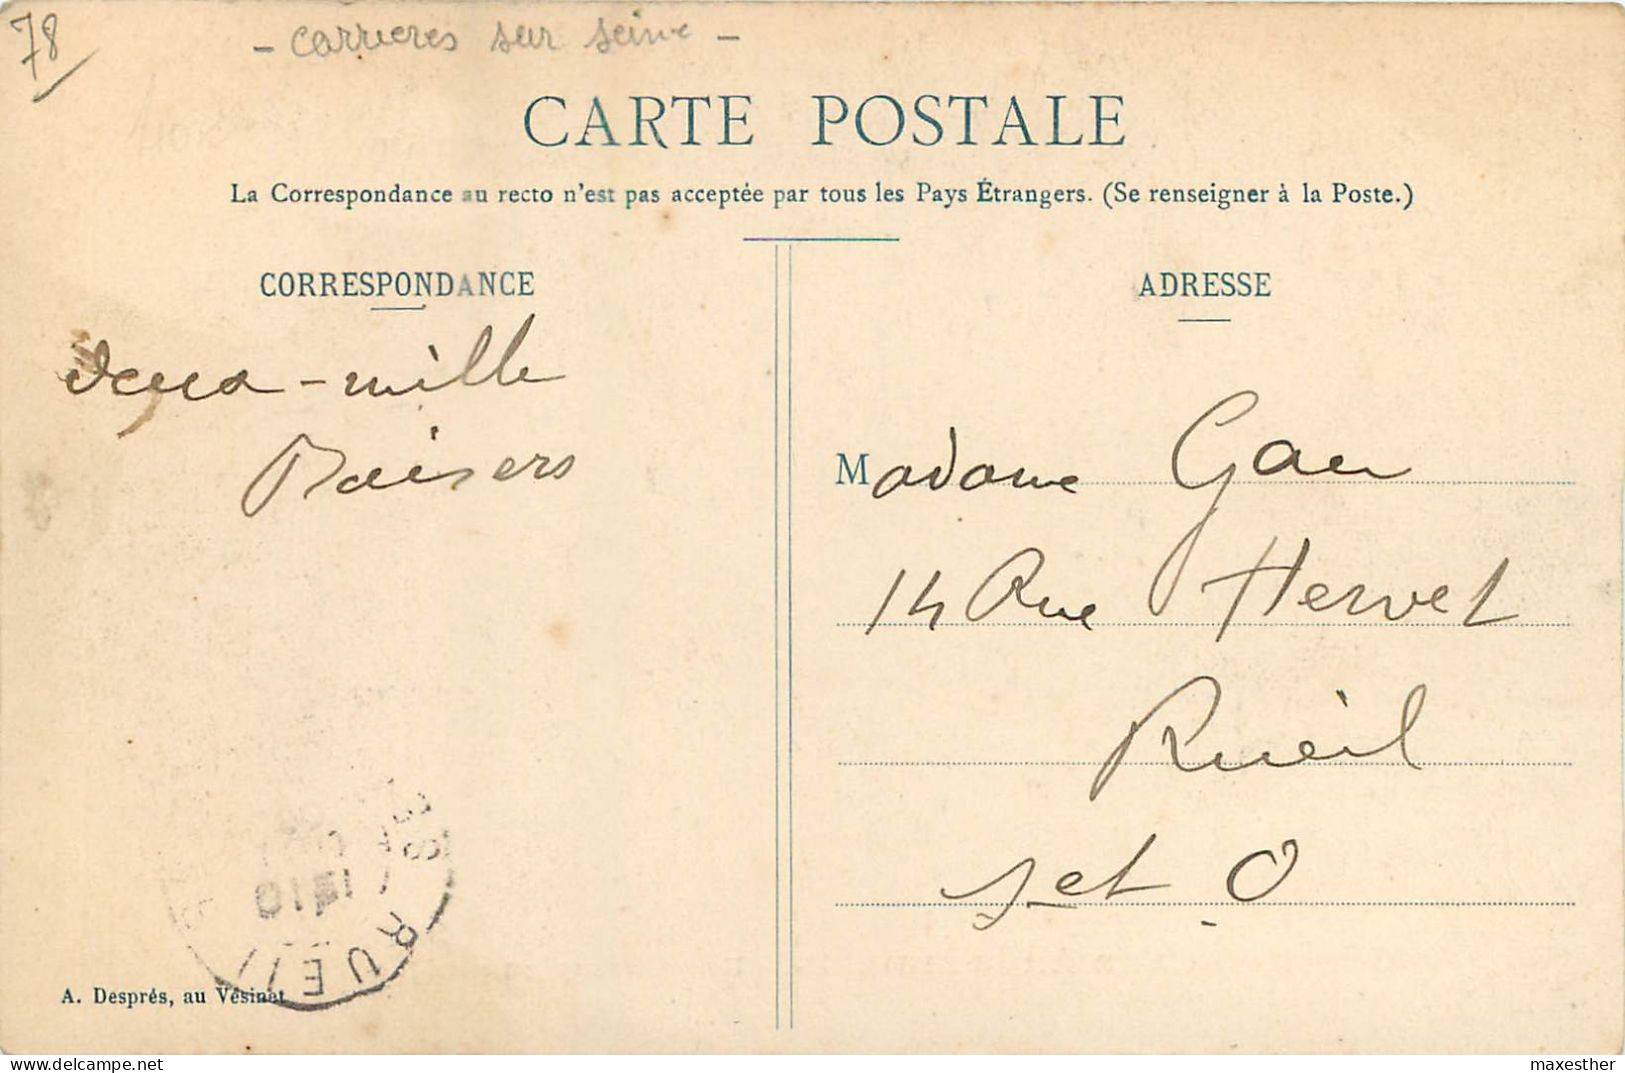 78
- carrieres sur seine -
CARTE POSTALE
La Correspondance au recto n'est pas acceptée par tous les Pays Étrangers. (Se renseigner à la Poste.)
CORRESPONDANCE
deux-mille
Baisers
ADRESSE
Madame Gau
14 Rue Hervet
Rueil
S et O
RUEIL
A. Després, au Vésinet
maxesther